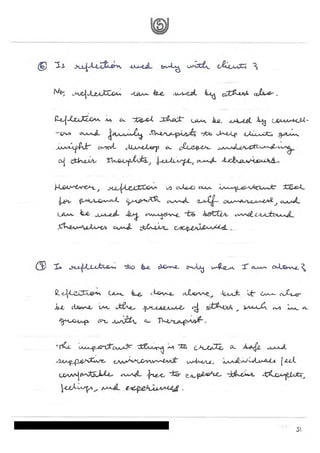 ⑥ Is reflection used only with clients ?
No, reflection can be used by others also.
Reflection is a tool that can be used by counsell-
-ors and family therapists to help clients gain
insight and develop a deeper understanding
of their thoughts, feelings, and behaviours.
However, reflection is also an important tool
for personal growth and self-awareness, and
can be used by anyone to better understand
themselves and their experiences.
⑦ Is reflection to be done only when I am alone?
Reflection can be done alone, but it can also
be done in the presence of others, such as in a
group or with a therapist.
The important thing is to create a safe and
supportive environment where individuals feel
comfortable and free to explore their thoughts,
feelings, and experiences.
51